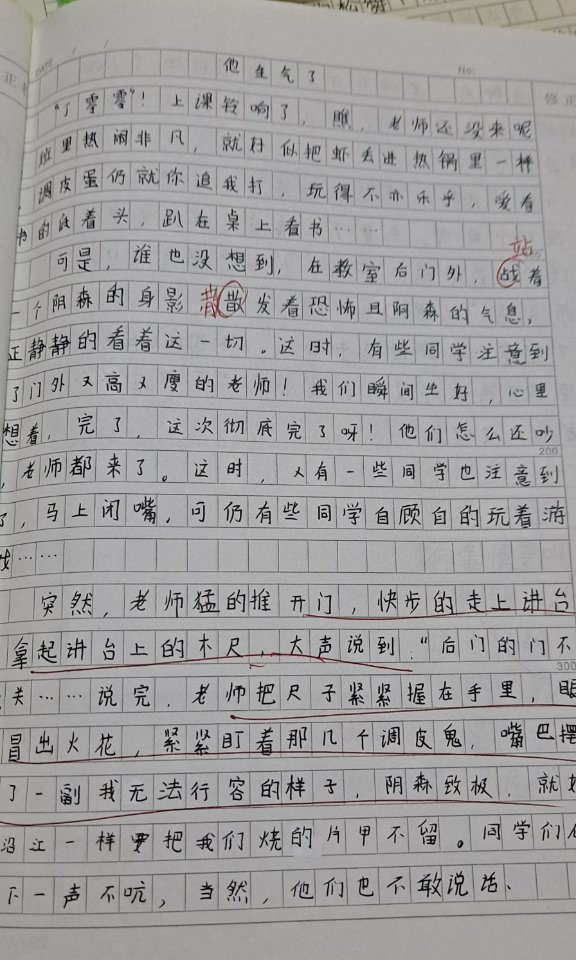 DATE / / No.
他生气了
"丁零零"！上课铃响了，瞧，老师还没来呢
班里热闹非凡，就好似把虾丢进热锅里一样
调皮蛋仍就你追我打，玩得不亦乐乎，爱看
书的底着头，趴在桌上看书……
站
可是，谁也没想到，在教室后门外，战着
一个阴森的身影散散发着恐怖且阴森的气息，
正静静的看着这一切。这时，有些同学注意到
了门外又高又瘦的老师！我们瞬间坐好，心里
想着，完了，这次彻底完了呀！他们怎么还吵
200
，老师都来了。这时，又有一些同学也注意到
了，马上闭嘴，可仍有些同学自顾自的玩着游
戏……
突然，老师猛的推开门，快步的走上讲台
拿起讲台上的木尺，大声说到："后门的门不
300
关……说完，老师把尺子紧紧握在手里，眼
冒出火花，紧紧盯着那几个调皮鬼，嘴巴摆
了一副我无法行容的样子，阴森致极，就好
一样要把我们烧的片甲不留。同学们
下一声不吭，当然，他们也不敢说话、